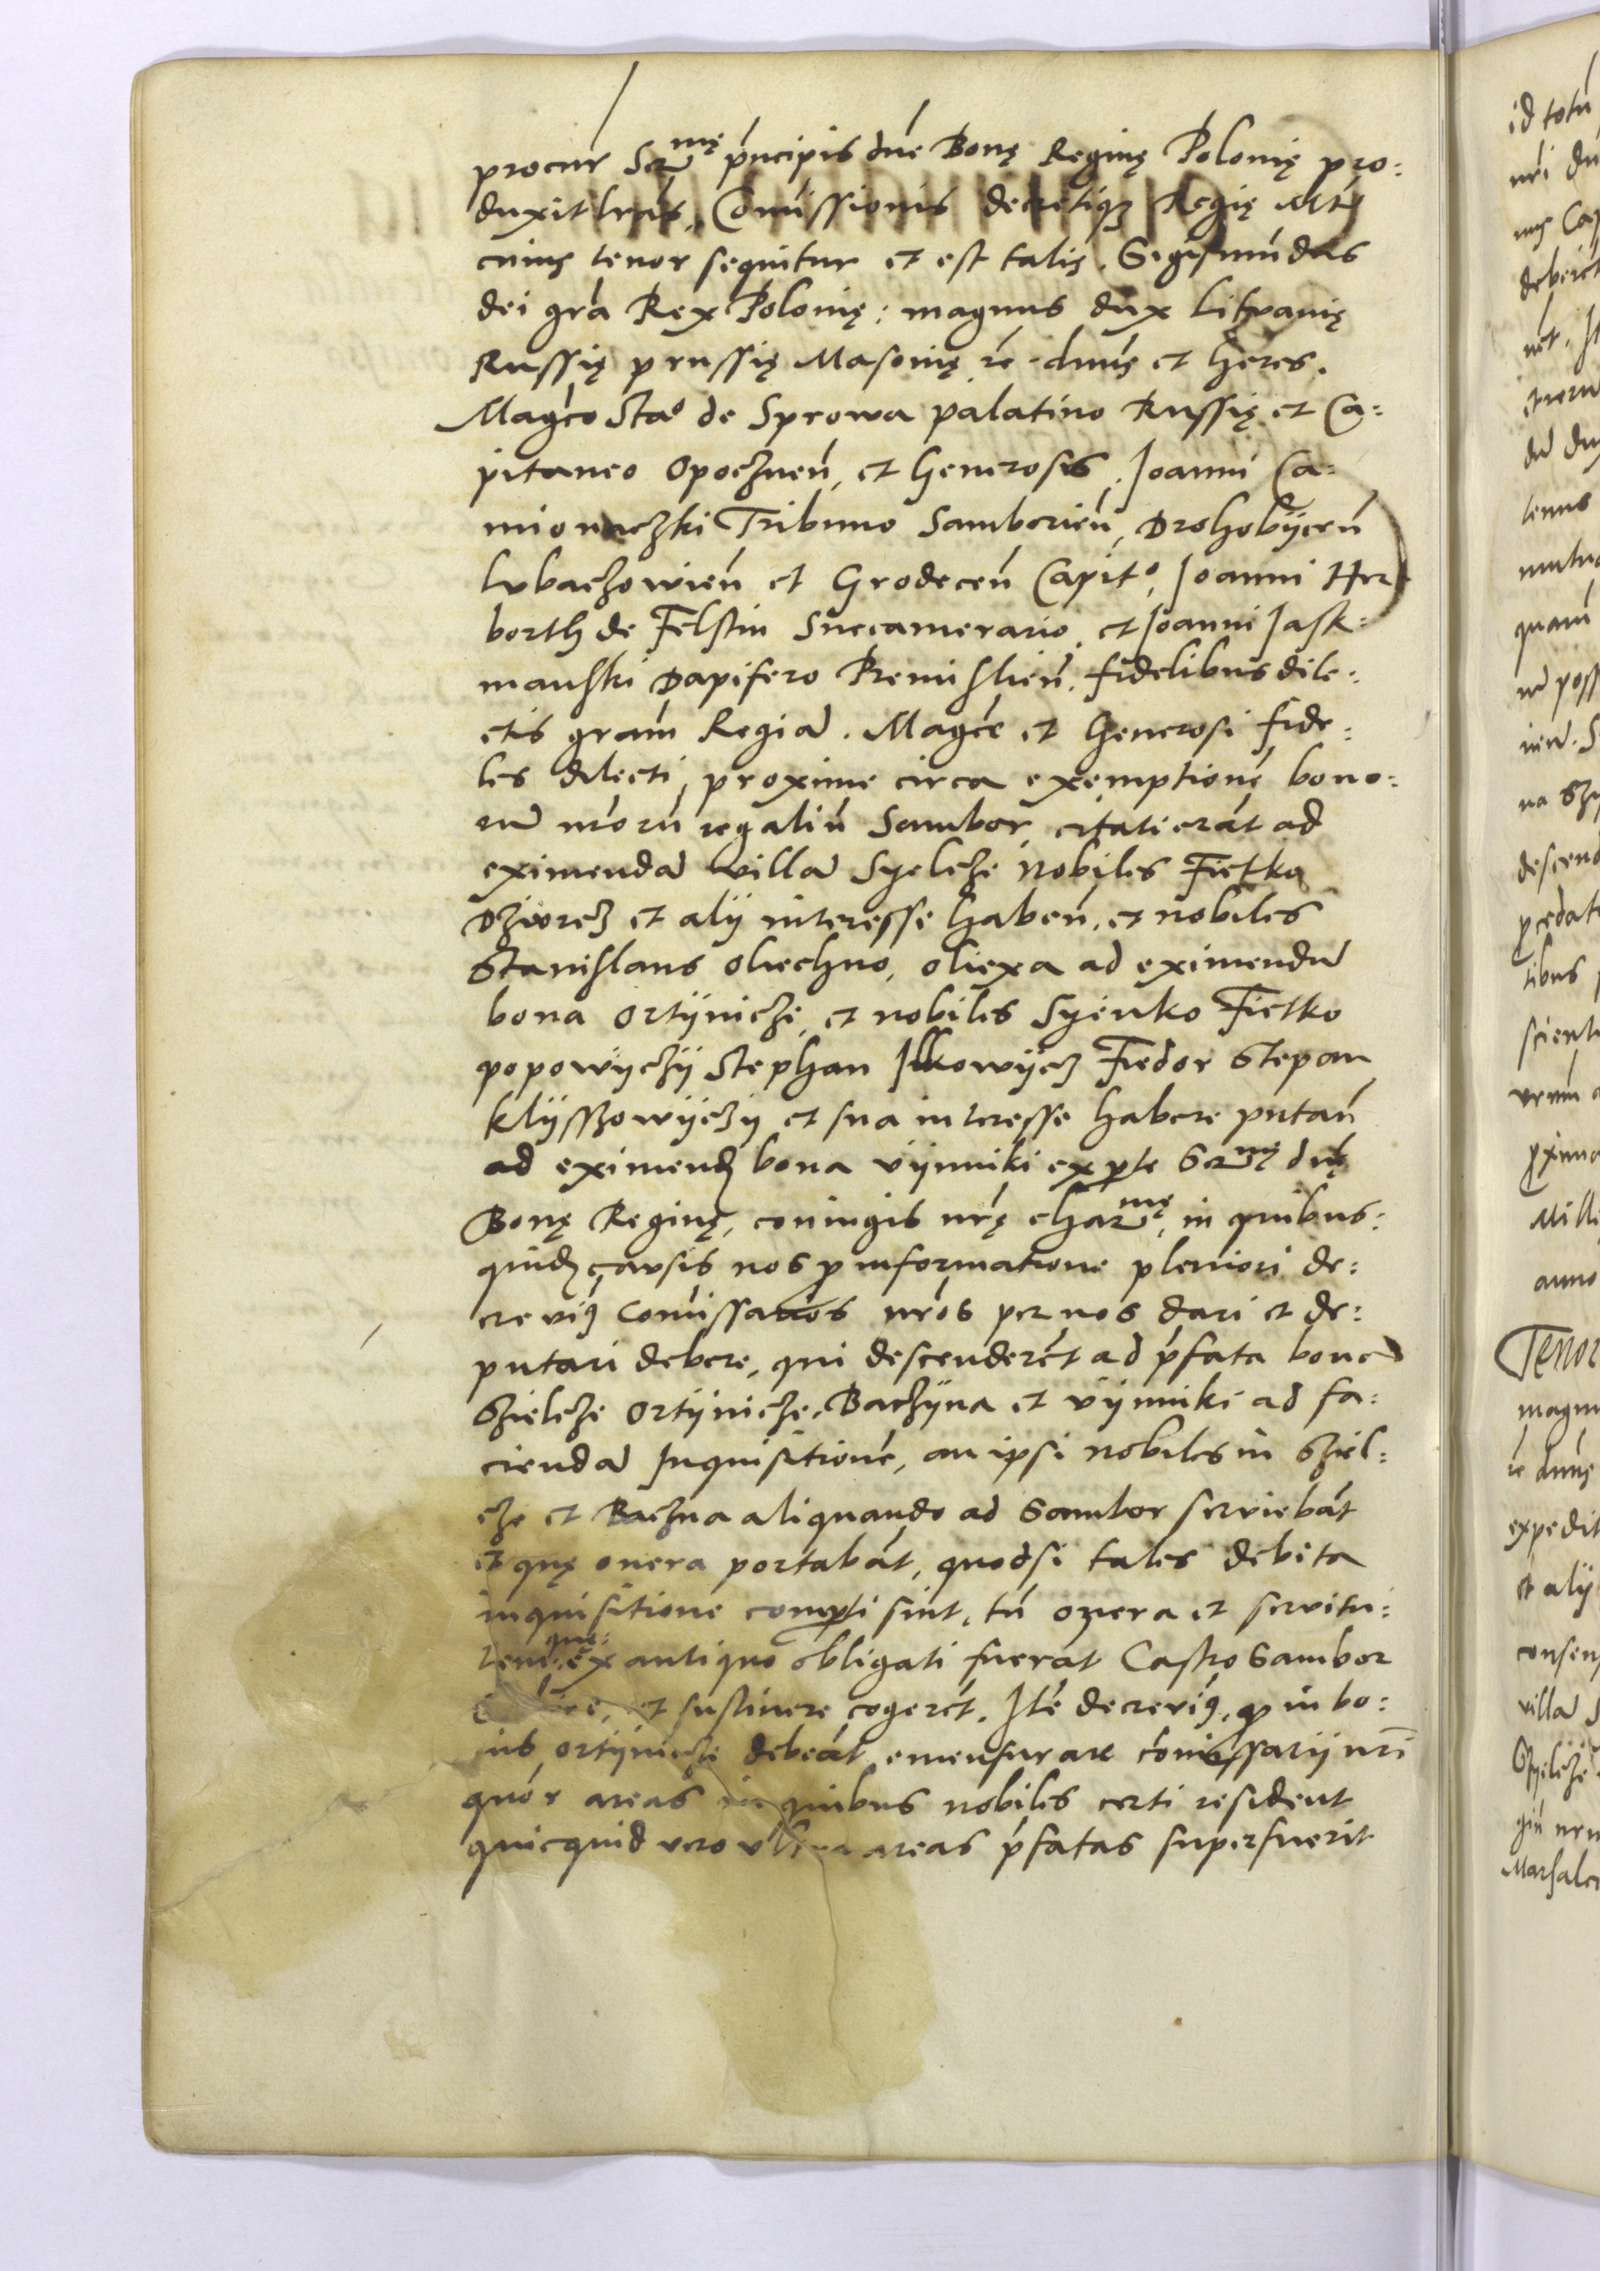 procur Ser^mę pncipis dne Bonę Reginę Polonię pro:
duxit lrās, Comissionis decretiqz Regię Mtis
cuius tenor sequitur et est talis. Sigismundus
dei gra Rex Polonię: magnus dux Litvanię
Russię prussię Masouię re. dnus et heres.
Magco Stao de Sprowa palatino Russię et Ca:
pitaneo Opocznen, et Generosis, Joanni Ca:
mionaczki Tribuno Samborien, Drohobÿcen
lvbaczowien et Grodecen Capito, Joanni Her
borth de Felstin Succamerario, et Joanni Jask:
manski Dapifero Premislien, fidelibus dile:
ctis gram Regiam. Magce et Generosi fide:
les dilecti, proxime circa exemptionę bono:
rum nrorum regaliu Sambor, citati erāt ad
eximendam villam Syelcze Nobiles Fietko
Dzworecz et alÿ interesse haben, et nobiles
Stanislaus Oliechno, Oliexa ad eximendum
bona Ortÿnicze, et nobiles Syenko Fietko
popowÿczÿ Stephan Ilkowÿcz Fiedor Stepan
klÿsszowÿczÿ et sua interesse habere putan
ad eximend bona Vÿnniki ex pte Ser^mę dnę
Bonę Reginę, coniugis nrę char^mę, in quibus:
quidz causis nos p informatione pleniori de:
crevim9 Comissarios nros per nos dari et de:
putari debere, qui descenderēt ad pfata bona
Szielcze Ortÿnicze, Baczÿna et Vÿnniki ad fa:
ciendam Inquisitionē, an ipsi nobiles in Sziel:
cze et Baczna aliquando ad Sambor serviebāt
et quę onera portabāt, quodsi tales debita
inquisitione comperti sint, tū onera et servitu:
tem que: ex antiquo obligati fuerāt Castro Sambor
et sustinere cogerēt. Itē decrevim9, qz in bo:
nis Ortÿnicze debeāt emensurare comissarÿ nri
quor areas in quibus nobiles certi resident
quicquid vero ultra areas pfatas superfuerit